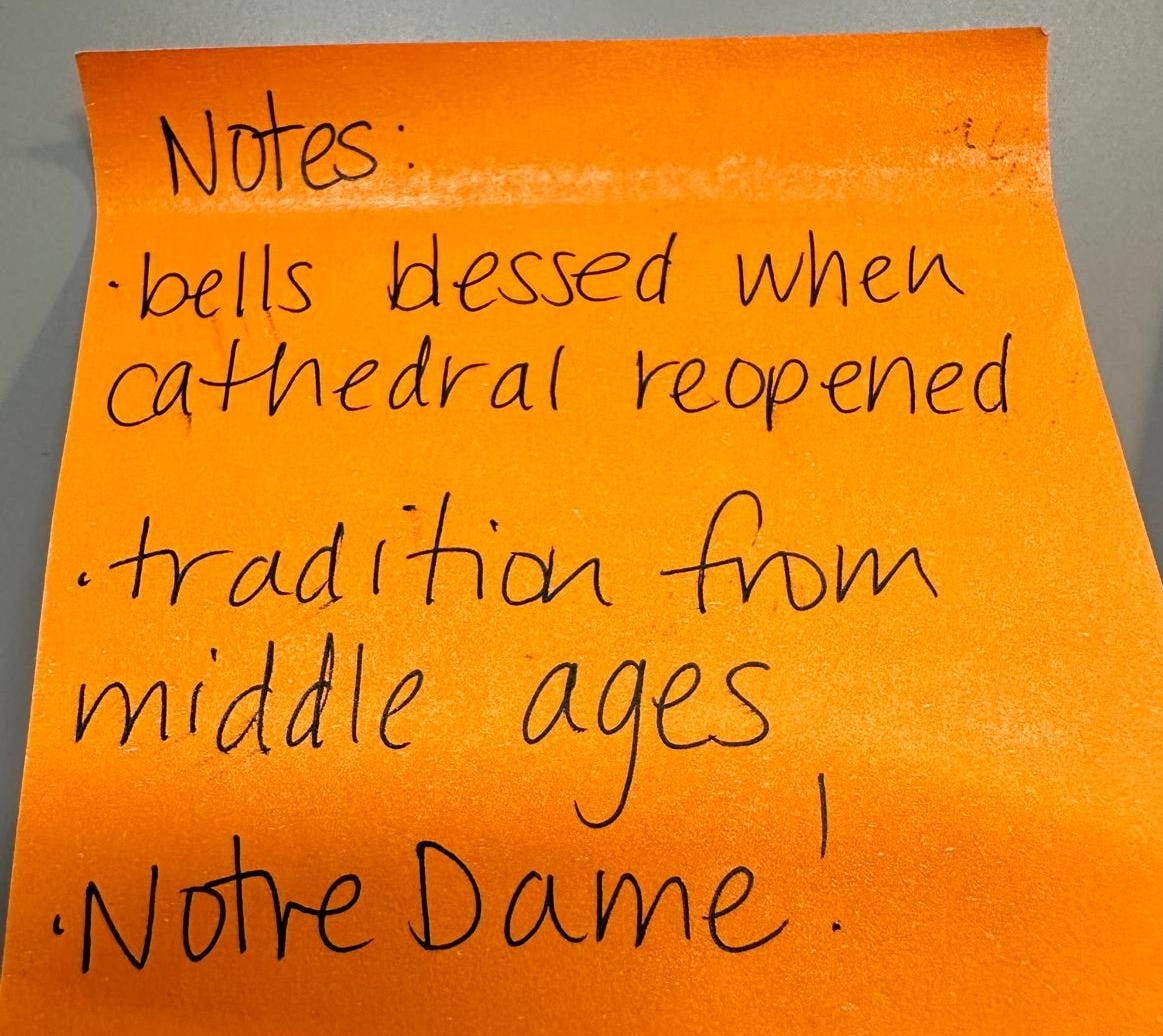 Notes:
·bells blessed when
cathedral reopened
·tradition from
middle ages
·Notre Dame!